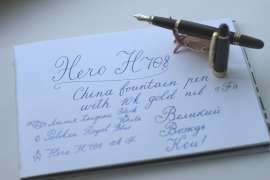 Hero H708
China fountain pen
with 10k gold nib «F»
Pelikan Royal Blue
Hero H708
Великий
Вождь